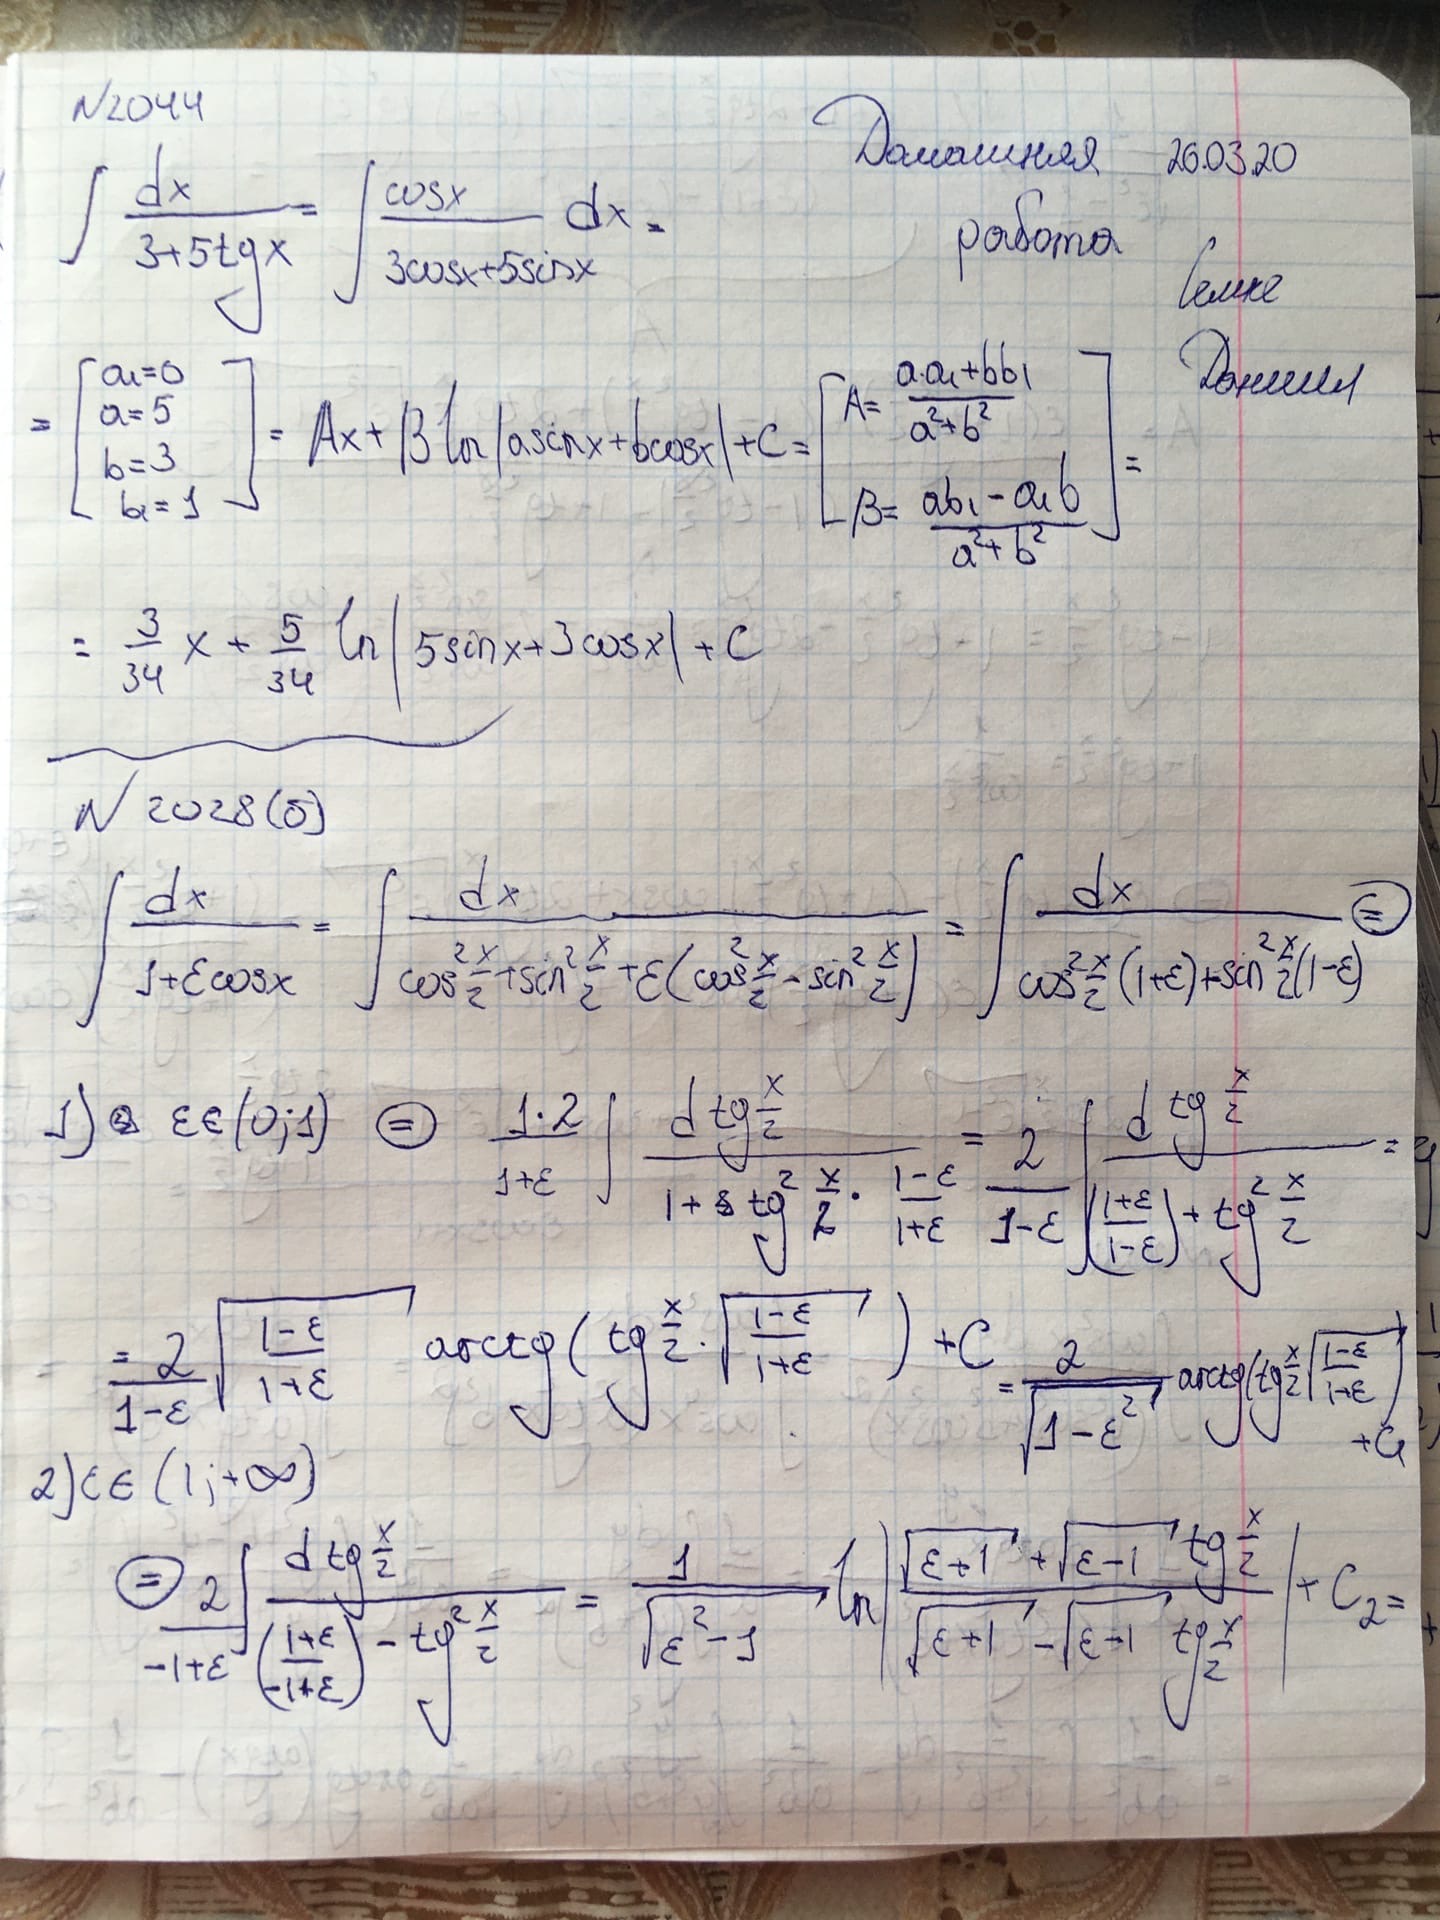 N2044
Домашняя 26.03.20
работа
Даниил
∫ dx/(3+5tgx) = ∫ cosx/(3cosx+5sinx) dx =
= [a₁=0 a=5 b=3 b₁=1] = Ax + B ln|asinx+bcosx| + C = [A= (a·a₁+bb₁)/(a²+b²) B= (ab₁-a₁b)/(a²+b²)] =
= 3/34 x + 5/34 ln|5sinx+3cosx| + C
N 2028(б)
∫ dx/(1+εcosx) = ∫ dx/(cos² x/2 + sin² x/2 + ε(cos² x/2 - sin² x/2)) = ∫ dx/(cos² x/2 (1+ε) + sin² x/2 (1-ε)) ⊜
1) ε∈(0;1) ⊜ 1·2/(1+ε) ∫ d tg x/2 / (1 + tg² x/2 · (1-ε)/(1+ε)) = 2/(1-ε) ∫ d tg x/2 / (((1+ε)/(1-ε)) + tg² x/2) =
= 2/(1-ε) √((1-ε)/(1+ε)) arctg(tg x/2 · √((1-ε)/(1+ε))) + C = 2/√(1-ε²) arctg(tg x/2 √((1-ε)/(1+ε))) + C₁
2) ε∈(1;+∞)
⊜ 2/(-1+ε) ∫ d tg x/2 / (((1+ε)/(-1+ε)) - tg² x/2) = 1/√(ε²-1) ln|(√(ε+1) + √(ε-1) tg x/2)/(√(ε+1) - √(ε-1) tg x/2)| + C₂ =